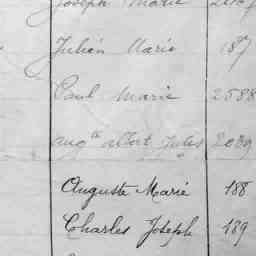 Joseph Marie
Julien Marie 187
Paul Marie 2588
aug^te albert Jules 2039
Auguste Marie 188
Charles Joseph 189